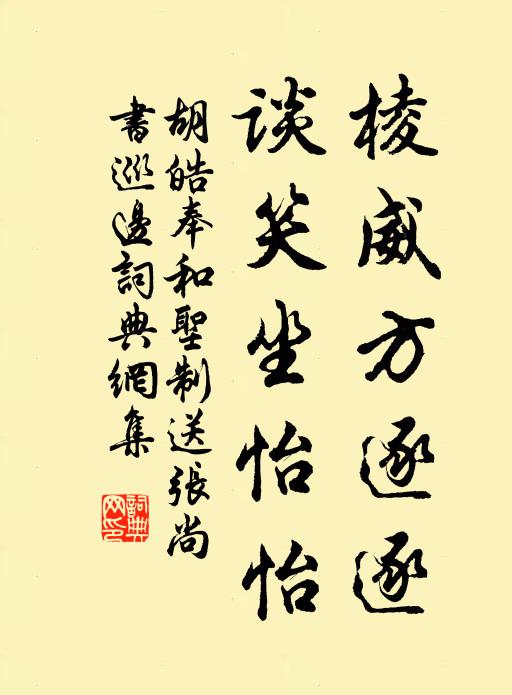 棱威方逐逐
谈笑坐怡怡
胡皓奉和聖制送張尚
書巡邊詞典網集
詞典網印